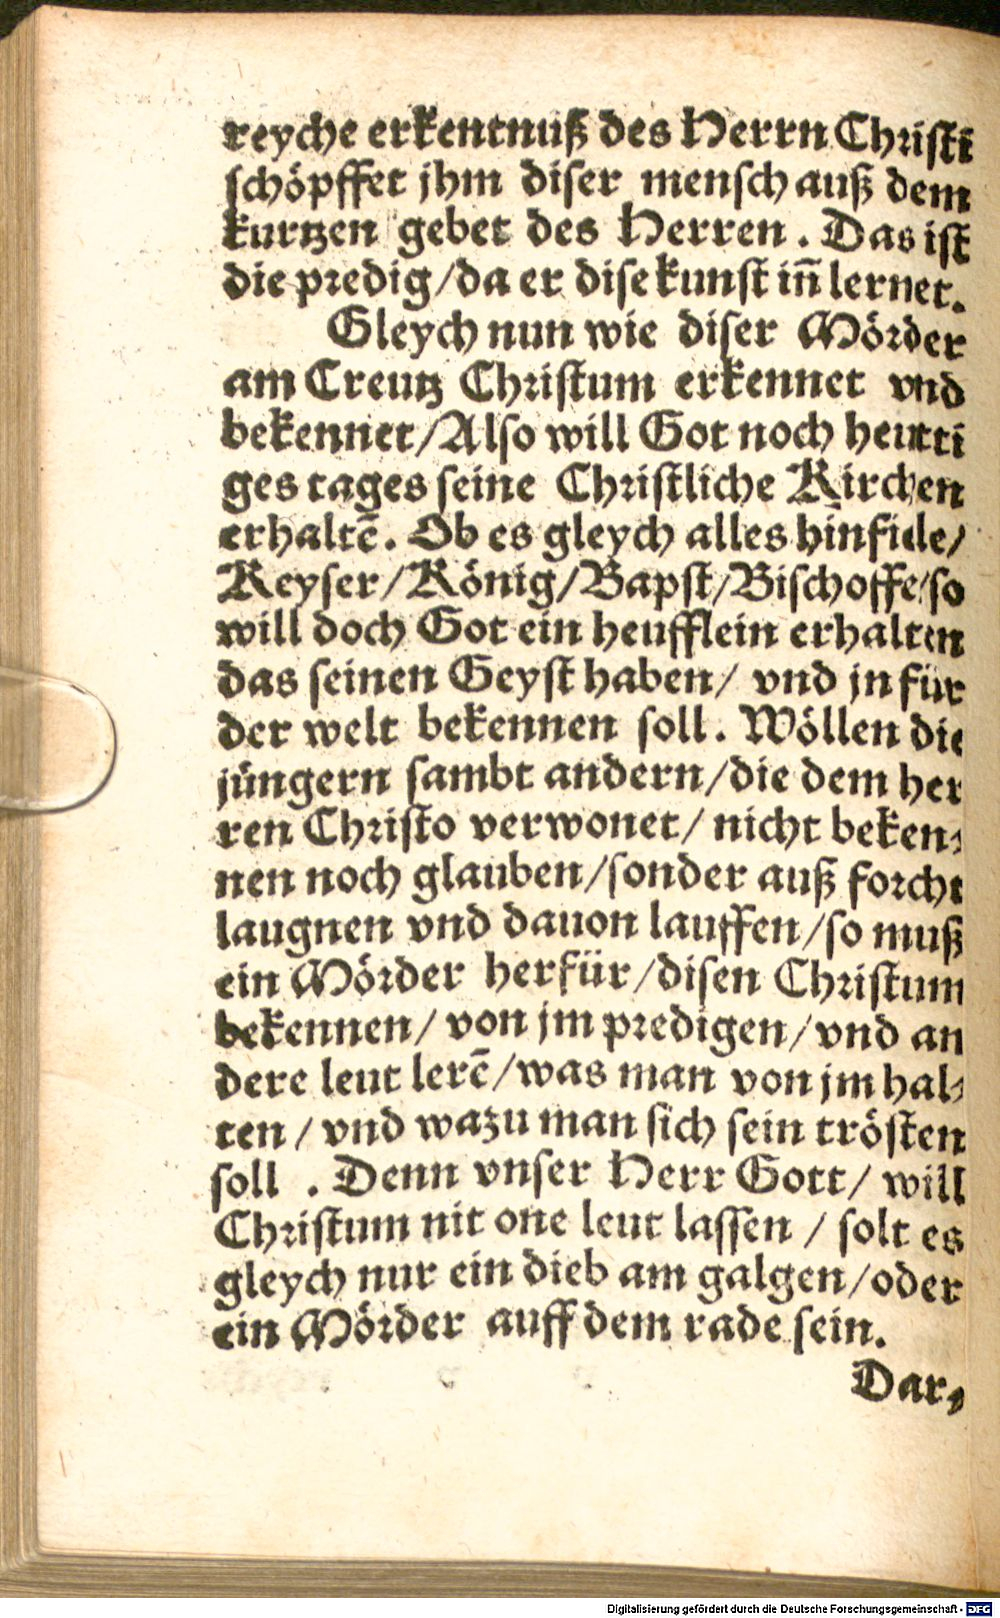 reyche erkentnuß des Herrn Christi
schöpffet jhm diser mensch auß dem
kurtzen gebet des Herren. Das ist
die predig/da er dise kunst iñ lernet.
Gleych nun wie diser Mörder
am Creutz Christum erkennet vnd
bekennet/Also will Got noch heutti
ges tages seine Christliche Kirchen
erhaltē. Ob es gleych alles hinfiele/
Keyser/König/Bapst/Bischoffe/so
will doch Got ein heufflein erhalten
das seinen Geyst haben/ vnd jn für
der welt bekennen soll. Wöllen die
jüngern sambt andern/die dem her
ren Christo verwonet/ nicht beken⸗
nen noch glauben/sonder auß forcht
laugnen vnd dauon lauffen/so muß
ein Mörder herfür/disen Christum
bekennen/ von jm predigen/vnd an
dere leut lerē/was man von jm hal⸗
ten/vnd wazu man sich sein trösten
soll . Denn vnser Herr Gott/ will
Christum nit one leut lassen / solt es
gleych nur ein dieb am galgen/oder
ein Mörder auff dem rade sein.
Dar⸗
Digitalisierung gefördert durch die Deutsche Forschungsgemeinschaft - DFG